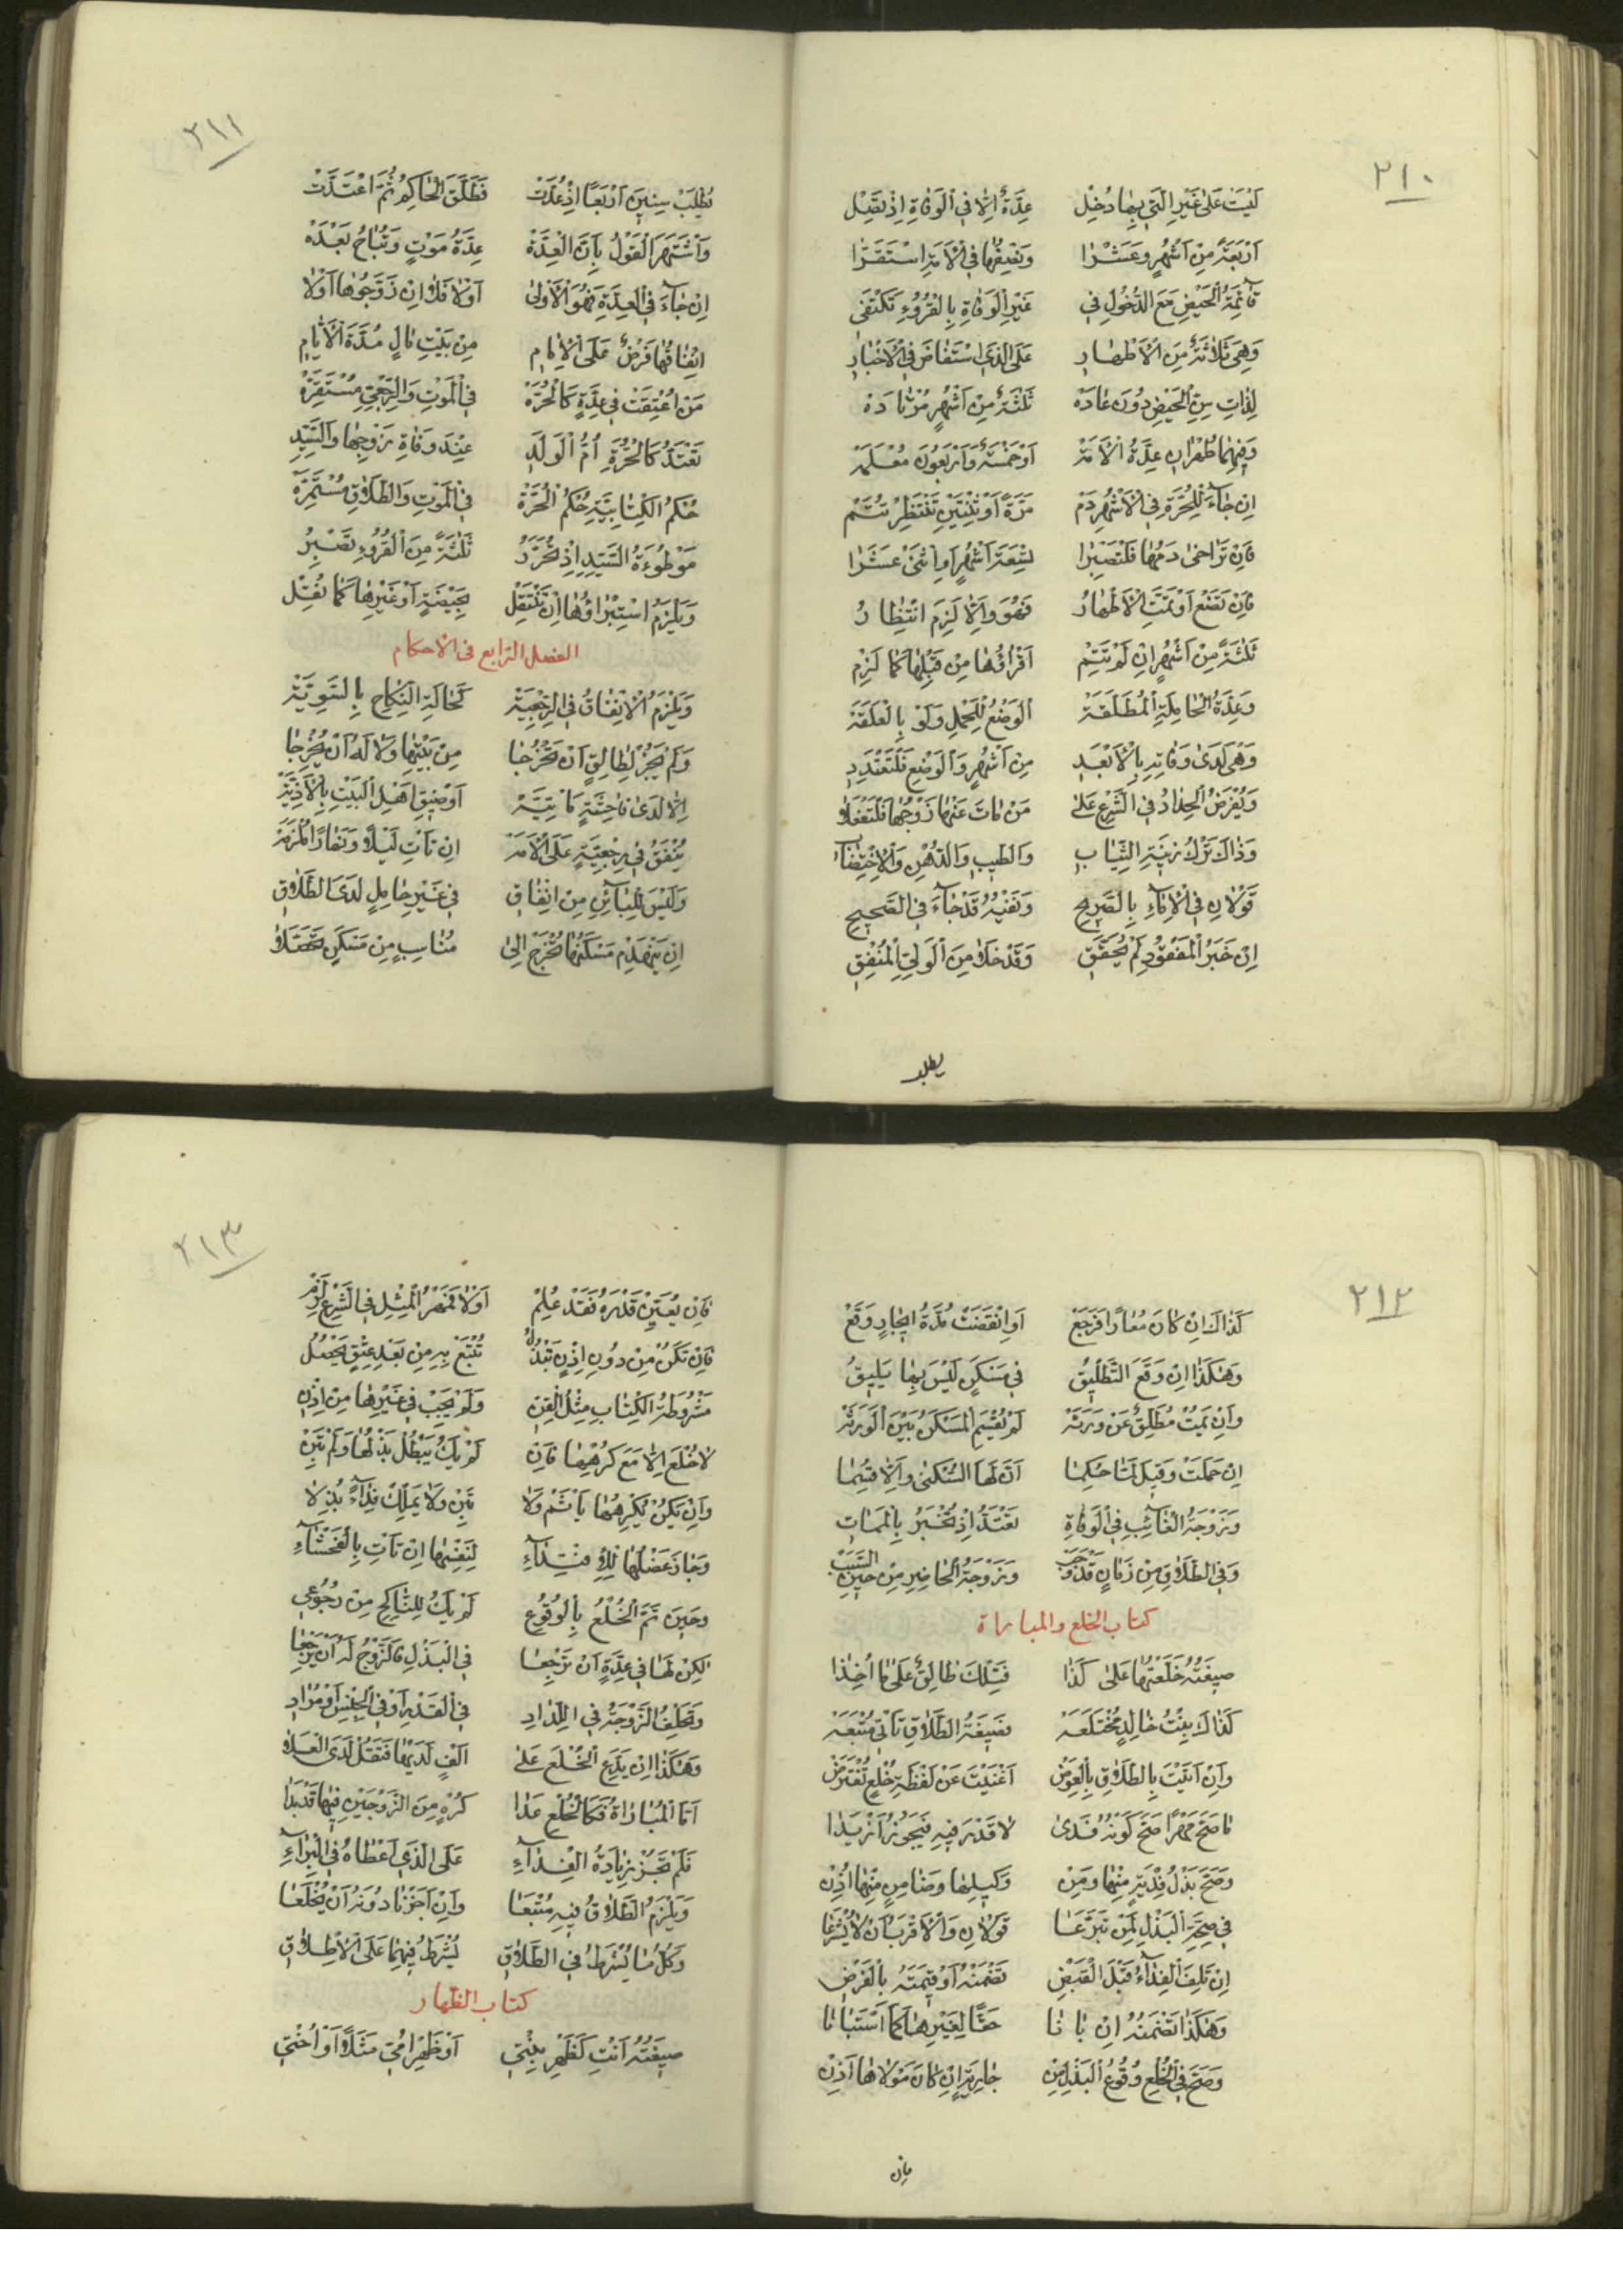 ٢١٠
لَيْسَتْ عَلىٰ غَيْرِ الَّتي بِهٰا دُخِلْ عِدَّةٌ اِلّٰا فِي الْوَفٰاةِ اِذْ تَصِلْ
اَرْبَعَةً مِنْ اَشْهُرٍ وَعَشْرٰا وَنِصْفُهٰا فِي الْاَمَةِ اسْتَقَرّٰا
قٰآئِمَةُ الْحَيْضِ مَعَ الدُّخُولِ في غَيْرِ الْوَفٰاةِ بِالْقُرُوءِ تَكْتَفي
وَهِيَ ثَلاٰثَةٌ مِنَ الْاَطْهٰارِ عَلَى الَّذِي اسْتَفٰاضَ فِي الْاَخْبٰارِ
لِذٰاتِ سِنِّ الْحَيْضِ دُونَ عٰادَهْ ثَلٰثَةٌ مِنْ اَشْهُرٍ مُرْتٰادَهْ
وَفيهِمٰا طُهْرٰانِ عِدَّةُ الْاَمَهْ اَوْ خَمْسَةٌ وَاَرْبَعُونَ مُعْلَمَهْ
اِنْ جٰآءَ لِلْحُرَّةِ فِي الْاَشْهُرِ دَمْ مَرَّةً اَوْ ثِنْتَيْنِ تَنْتَظِرْ تُتَمْ
فَاِنْ تَرٰاخىٰ دَمُهٰا فَلْتَصْبِرٰا تِسْعَةَ اَشْهُرٍ اَوِ اثْنىٰ عَشَرٰا
فَاِنْ تَضَعْ اَوْ تَمَّتِ الْاَطْهٰارُ فَهُوَ وَاِلّٰا لَزِمَ انْتِظٰارُ
ثَلٰثَةً مِنْ اَشْهُرٍ اِنْ لَمْ تَتِمْ اَقْرٰاؤُهٰا مِنْ قَبْلِهٰا كَمٰا لَزِمْ
وَعِدَّةُ الْحٰامِلَةِ الْمُطَلَّقَهْ اَلْوَضْعُ لِلْحَمْلِ وَلَوْ بِالْعَلَقَهْ
وَهْيَ لَدىٰ وَفٰاتِهِ بِالْاَبْعَدِ مِنْ اَشْهُرٍ وَالْوَضْعِ فَلْتَعْتَدِدِ
وَيُفْرَضُ الْحِدٰادُ فِي الشَّرْعِ عَلىٰ مَنْ مٰاتَ عَنْهٰا زَوْجُهٰا
وَذٰاكَ تَرْكُ زينَةِ الثِّيٰابِ وَالطّيبِ وَالدُّهْنِ وَالْاِخْتِضٰابِ
قَوْلاٰنِ فِي الْاِمٰآءِ بِالصَّريحِ وَنَفْيُهُ قَدْ جٰآءَ فِي الصَّحيحِ
اِنْ خَبَرُ الْمَفْقُودِ لَمْ يُحَقَّقِ وَقَدْ خَلاٰ مِنَ الْوَلِيِّ الْمُنْفِقِ
يطلب
٢١١
يُطْلَبْ سِنينَ اَرْبَعًا اِذْ عُدَّتْ فَطَلَّقَ الْحٰاكِمُ ثُمَّ اعْتَدَّتْ
وَاشْتَهَرَ الْقَوْلُ بِاَنَّ الْعِدَّهْ عِدَّةُ مَوْتٍ وَتُبٰاحُ بَعْدَهْ
اِنْ جٰآءَ فِي الْعِدَّةِ فَهُوَ الْاَوْلىٰ اَوْلاٰ فَلاٰ اِنْ زَوَّجُوهٰا اَوْلاٰ
اِنْفٰاقُهٰا فَرْضٌ عَلَى الْاِمٰامِ مِنْ بَيْتِ مٰالٍ مُدَّةَ الْاَيّٰامِ
مَنْ اُعْتِقَتْ في عِدَّةٍ كَالْحُرَّهْ فِي الْمَوْتِ وَالرَّجْعِيِّ مُسْتَقِرَّهْ
تَعْتَدُّ كَالْحُرَّةِ اُمُّ الْوَلَدِ عِنْدَ وَفٰاةِ زَوْجِهٰا وَالسَّيِّدِ
حُكْمُ الْكِتٰابِيَّةِ حُكْمُ الْحُرَّهْ فِي الْمَوْتِ وَالطَّلاٰقِ مُسْتَمِرَّهْ
مَوْطُوءَةُ السَّيِّدِ اِذْ تُحَرَّرُ ثَلٰثَةً مِنَ الْقُرُوءِ تَصْبِرُ
وَيَلْزَمُ اسْتِبْرٰاؤُهٰا اِنْ تَنْتَقِلْ بِحَيْضَةٍ اَوْ غَيْرِهٰا كَمٰا نُقِلْ
الفصل الرابع فى الاحكام
وَيَلْزَمُ الْاِنْفٰاقُ فِي الرَّجْعِيَّهْ كَحٰالَةِ النِّكٰاحِ بِالسَّوِيَّهْ
وَلَمْ يَجُزْ لِطٰالِقٍ اَنْ تَخْرُجٰا مِنْ بَيْتِهٰا وَلاٰ لَهُ اَنْ يُخْرِجٰا
اِلّٰا لَدىٰ فٰاحِشَةٍ مَأْتِيَّهْ اَوْ ضيقِ اَهْلِ الْبَيْتِ بِالْاَذِيَّهْ
يُنْفَقُ في رِجْعِيَّةٍ عَلَى الْاَمَهْ اِنْ بٰاتَ لَيْلاً وَنَهٰارًا
وَلَيْسَ لِلْبٰآئِنِ مِنْ اِنْفٰاقِ في غَيْرِ حٰامِلٍ لَدَى الطَّلاٰقِ
اِنْ يَنْهَدِمْ مَسْكَنُهٰا تُخْرَجْ اِلىٰ مُنٰاسِبٍ مِنْ مَسْكَنٍ
٢١٢
كَذٰاكَ اِنْ كٰانَ مُعٰارًا فَرَجَعْ اَوِ انْقَضَتْ مُدَّةُ ايجٰارٍ وَقَعْ
وَهٰكَذٰا اِنْ وَقَعَ التَّطْليقُ في مَسْكَنٍ لَيْسَ بِهٰا يَليقُ
وَاِنْ يَمُتْ مُطَلِّقٌ عَنْ وَرَثَهْ لَمْ يُقْسَمِ الْمَسْكَنُ بَيْنَ الْوَرَثَهْ
اِنْ حَمَلَتْ وَقيلَ لَمّٰا حُكِمٰا اَنَّ لَهَا السُّكْنىٰ وَاِلّٰا قُسِمٰا
وَزَوْجَةُ الْغٰآئِبِ فِي الْوَفٰاةِ تَعْتَدُّ اِذْ تُخْبَرُ بِالْمَمٰاتِ
وَفِي الطَّلاٰقِ مِنْ زَمٰانٍ قَدْ وَجَبْ وَزَوْجَةُ الْحٰاضِرِ مِنْ حينِ السَّبَبْ
كتاب الخلع والمباراة
صيغَتُهُ خَلَعْتُهٰا عَلىٰ كَذٰا فَتِلْكَ طٰالِقٌ عَلىٰ مٰا اُخِذٰا
كَذٰاكَ بِنْتُ خٰالِدٍ مُخْتَلَعَهْ فَصيغَةُ الطَّلاٰقِ تَأْتي مُتْبَعَهْ
وَاِنْ اَتَيْتَ بِالطَّلاٰقِ بِالْعِوَضْ اَغْنَيْتَ عَنْ لَفْظَةِ خُلْعٍ تُفْتَرَضْ
مٰا صَحَّ مَهْرًا صَحَّ كَوْنُهُ فِدىٰ لاٰ قَدْرَ فيهِ فَيَجُوزُ اَزْيَدٰا
وَصَحَّ بَذْلُ فِدْيَةٍ مِنْهٰا وَمِنْ وَكيلِهٰا وَضٰامِنٍ مِنْهٰا اُذِنْ
في صِحَّةِ الْبَذْلِ لِمَنْ تَبَرَّعٰا قَوْلاٰنِ وَالْاَقْرَبُ اَنْ لاٰ يُشْرَعٰا
اِنْ تَلِفَ الْفِدٰآءُ قَبْلَ الْقَبْضِ تَضْمَنْهُ اَوْ قيمَتَهُ بِالْفَرْضِ
وَهٰكَذٰا تَضْمَنُهُ اِنْ بٰانٰا حَقًّا لِغَيْرِهٰا كَمَا اسْتَبٰانٰا
وَصَحَّ فِي الْخُلْعِ وُقُوعُ الْبَذْلِ مِنْ جٰارِيَةٍ اِنْ كٰانَ مَوْلاٰهٰا اَذِنْ
فان
٢١٣
فَاِنْ يُعَيِّنْ قَدْرَهُ فَقَدْ عُلِمْ اَوْلاٰ فَمَهْرُ الْمِثْلِ فِي الشَّرْعِ لَزِمْ
فَاِنْ تَكُنْ مِنْ دُونِ اِذْنٍ تَبْذُلُ تُتْبَعْ بِهِ مِنْ بَعْدِ عِتْقٍ يَحْصُلُ
مَشْرُوطَةُ الْكِتٰابِ مِثْلُ الْقِنِّ وَلَمْ يَجِبْ في غَيْرِهٰا مِنْ اِذْنِ
لاٰ خُلْعَ اِلّٰا مَعَ كَرْهِهٰا فَاِنْ لَمْ يَكُ يَبْطُلْ بَذْلُهٰا وَلَمْ تَبِنْ
وَاِنْ يَكُنْ يُكْرِهُهٰا يَأْثَمْ وَلاٰ تَبِنْ وَلاٰ يَمْلِكْ فِدٰآءً بُذِلاٰ
وَجٰازَ عَضْلُهٰا لِلْاِفْتِدٰآءِ لِنَفْسِهٰا اِنْ تَأْتِ بِالْفَحْشٰآءِ
وَحينَ تَمَّ الْخُلْعُ بِالْوُقُوعِ لَمْ يَكُ لِلنّٰاكِحِ مِنْ رُجُوعِ
لٰكِنْ لَهٰا في عِدَّةٍ اَنْ تَرْجِعٰا فِي الْبَذْلِ فَالزَّوْجُ لَهُ اَنْ يَرْجِعٰا
وَتَحْلِفُ الزَّوْجَةُ في فِي الْقَدْرِ اَوْ فِي الْجِنْسِ اَوْ مُرٰادِ
وَهٰكَذٰا اِنْ يَدَّعِ الْخُلْعَ عَلىٰ اَلْفٍ لَدَيْهٰا
اَمَّا الْمُبٰارٰاةُ فَكَالْخُلْعِ عَدٰا كُرْهٍ مِنَ الزَّوْجَيْنِ فيهٰا قَدْ بَدٰا
فَلَمْ تَجُزْ زِيٰادَةُ الْفِدٰآءِ عَلَى الَّذي اَعْطٰاهُ فِي الْبَرٰآءِ
وَيَلْزَمُ الطَّلاٰقُ فيهِ مُتْبَعٰا وَاِنْ اَجَزْنٰا دُونَهُ اَنْ يُخْلَعٰا
وَكُلُّ مٰا يُشْرَطُ فِي الطَّلاٰقِ يُشْرَطُ فيهِمٰا عَلَى الْاِطْلاٰقِ
كتاب الظهار
صيغَتُهُ اَنْتِ كَظَهْرِ بِنْتي اَوْ ظَهْرِ اُمّي مَثَلاً اَوْ اُخْتي